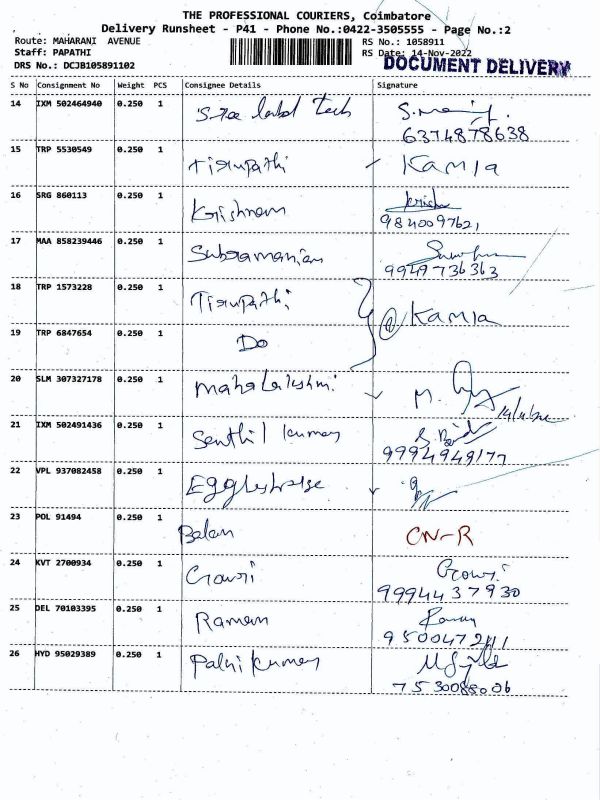 THE PROFESSIONAL COURIERS, Coimbatore
Delivery Runsheet - P41 - Phone No.:0422-3505555 - Page No.:2
Route: MAHARANI AVENUE
RS No.: 1058911
Staff: PAPATHI
RS Date: 14-Nov-2022
DRS No.: DCJB105891102
DOCUMENT DELIVERY
S No Consignment No Weight PCS Consignee Details Signature
14 IXM 502464940 0.250 1 Sree label Tech
6374878638
15 TRP 5530549 0.250 1 Tirupathi Kamla
16 SRG 860113 0.250 1 Krishnan
9840097621
17 MAA 858239446 0.250 1 Subramanian
9949736363
18 TRP 1573228 0.250 1 Tirupathi
@ Kamla
19 TRP 6847654 0.250 1 Do
20 SLM 307327178 0.250 1 Mahalakshmi M.
21 IXM 502491436 0.250 1 Senthil kumar
9994949177
22 VPL 937082458 0.250 1
23 POL 91494 0.250 1 Balan CN-R
24 KVT 2700934 0.250 1 Gowri Gowri
9994437930
25 DEL 70103395 0.250 1 Raman
26 HYD 95029389 0.250 1 Palni kumar
7530088006